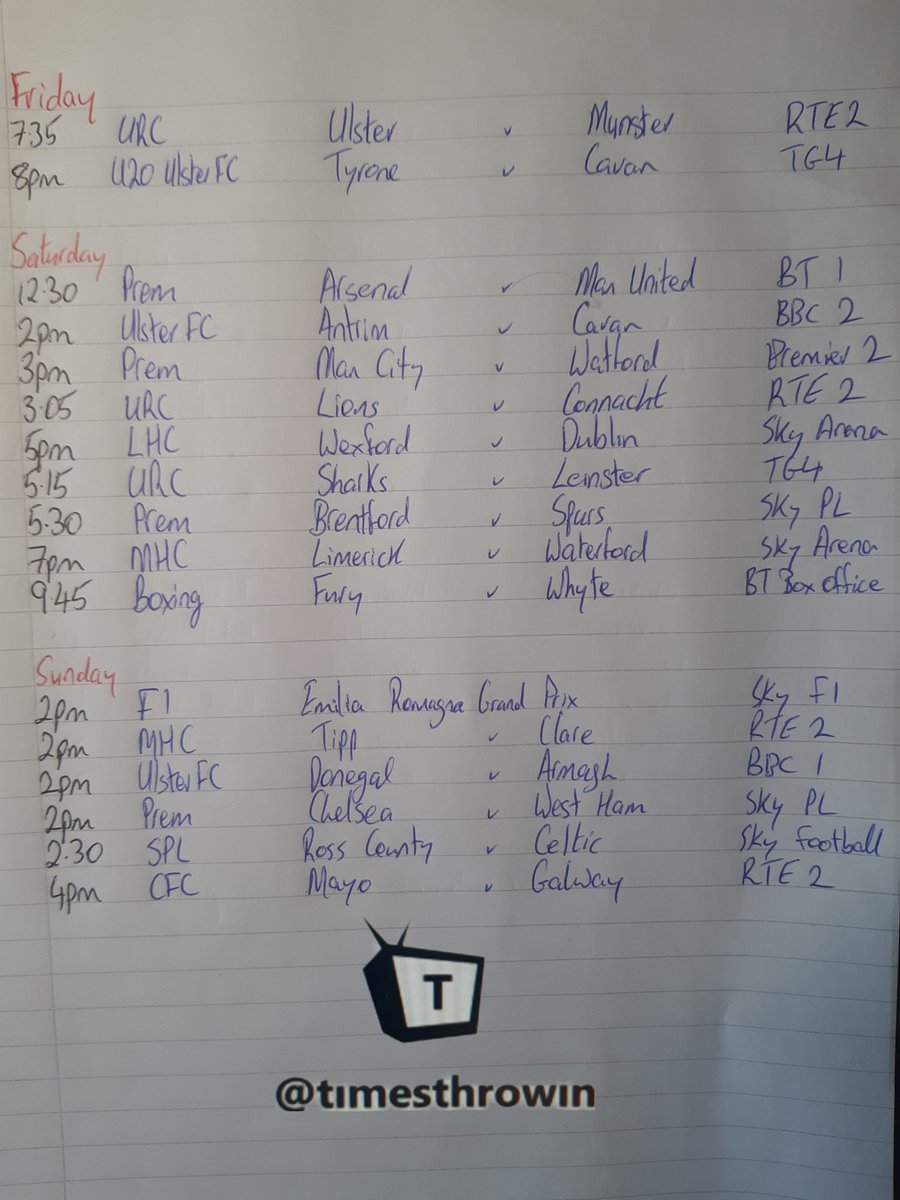 Friday
7.35 URC Ulster v Munster RTE2
8pm U20 Ulster FC Tyrone v Cavan TG4
Saturday
12.30 Prem Arsenal v Man United BT 1
2pm Ulster FC Antrim v Cavan BBC 2
3pm Prem Man City v Watford Premier 2
3.05 URC Lions v Connacht RTE 2
5pm LHC Wexford v Dublin Sky Arena
5.15 URC Sharks v Leinster TG4
5.30 Prem Brentford v Spurs Sky PL
7pm MHC Limerick v Waterford Sky Arena
9.45 Boxing Fury v Whyte BT Box office
Sunday
2pm F1 Emilia Romagna Grand Prix Sky F1
2pm MHC Tipp v Clare RTE 2
2pm Ulster FC Donegal v Armagh BBC 1
2pm Prem Chelsea v West Ham Sky PL
2.30 SPL Ross County v Celtic Sky Football
4pm CFC Mayo v Galway RTE 2
T
@timesthrowin